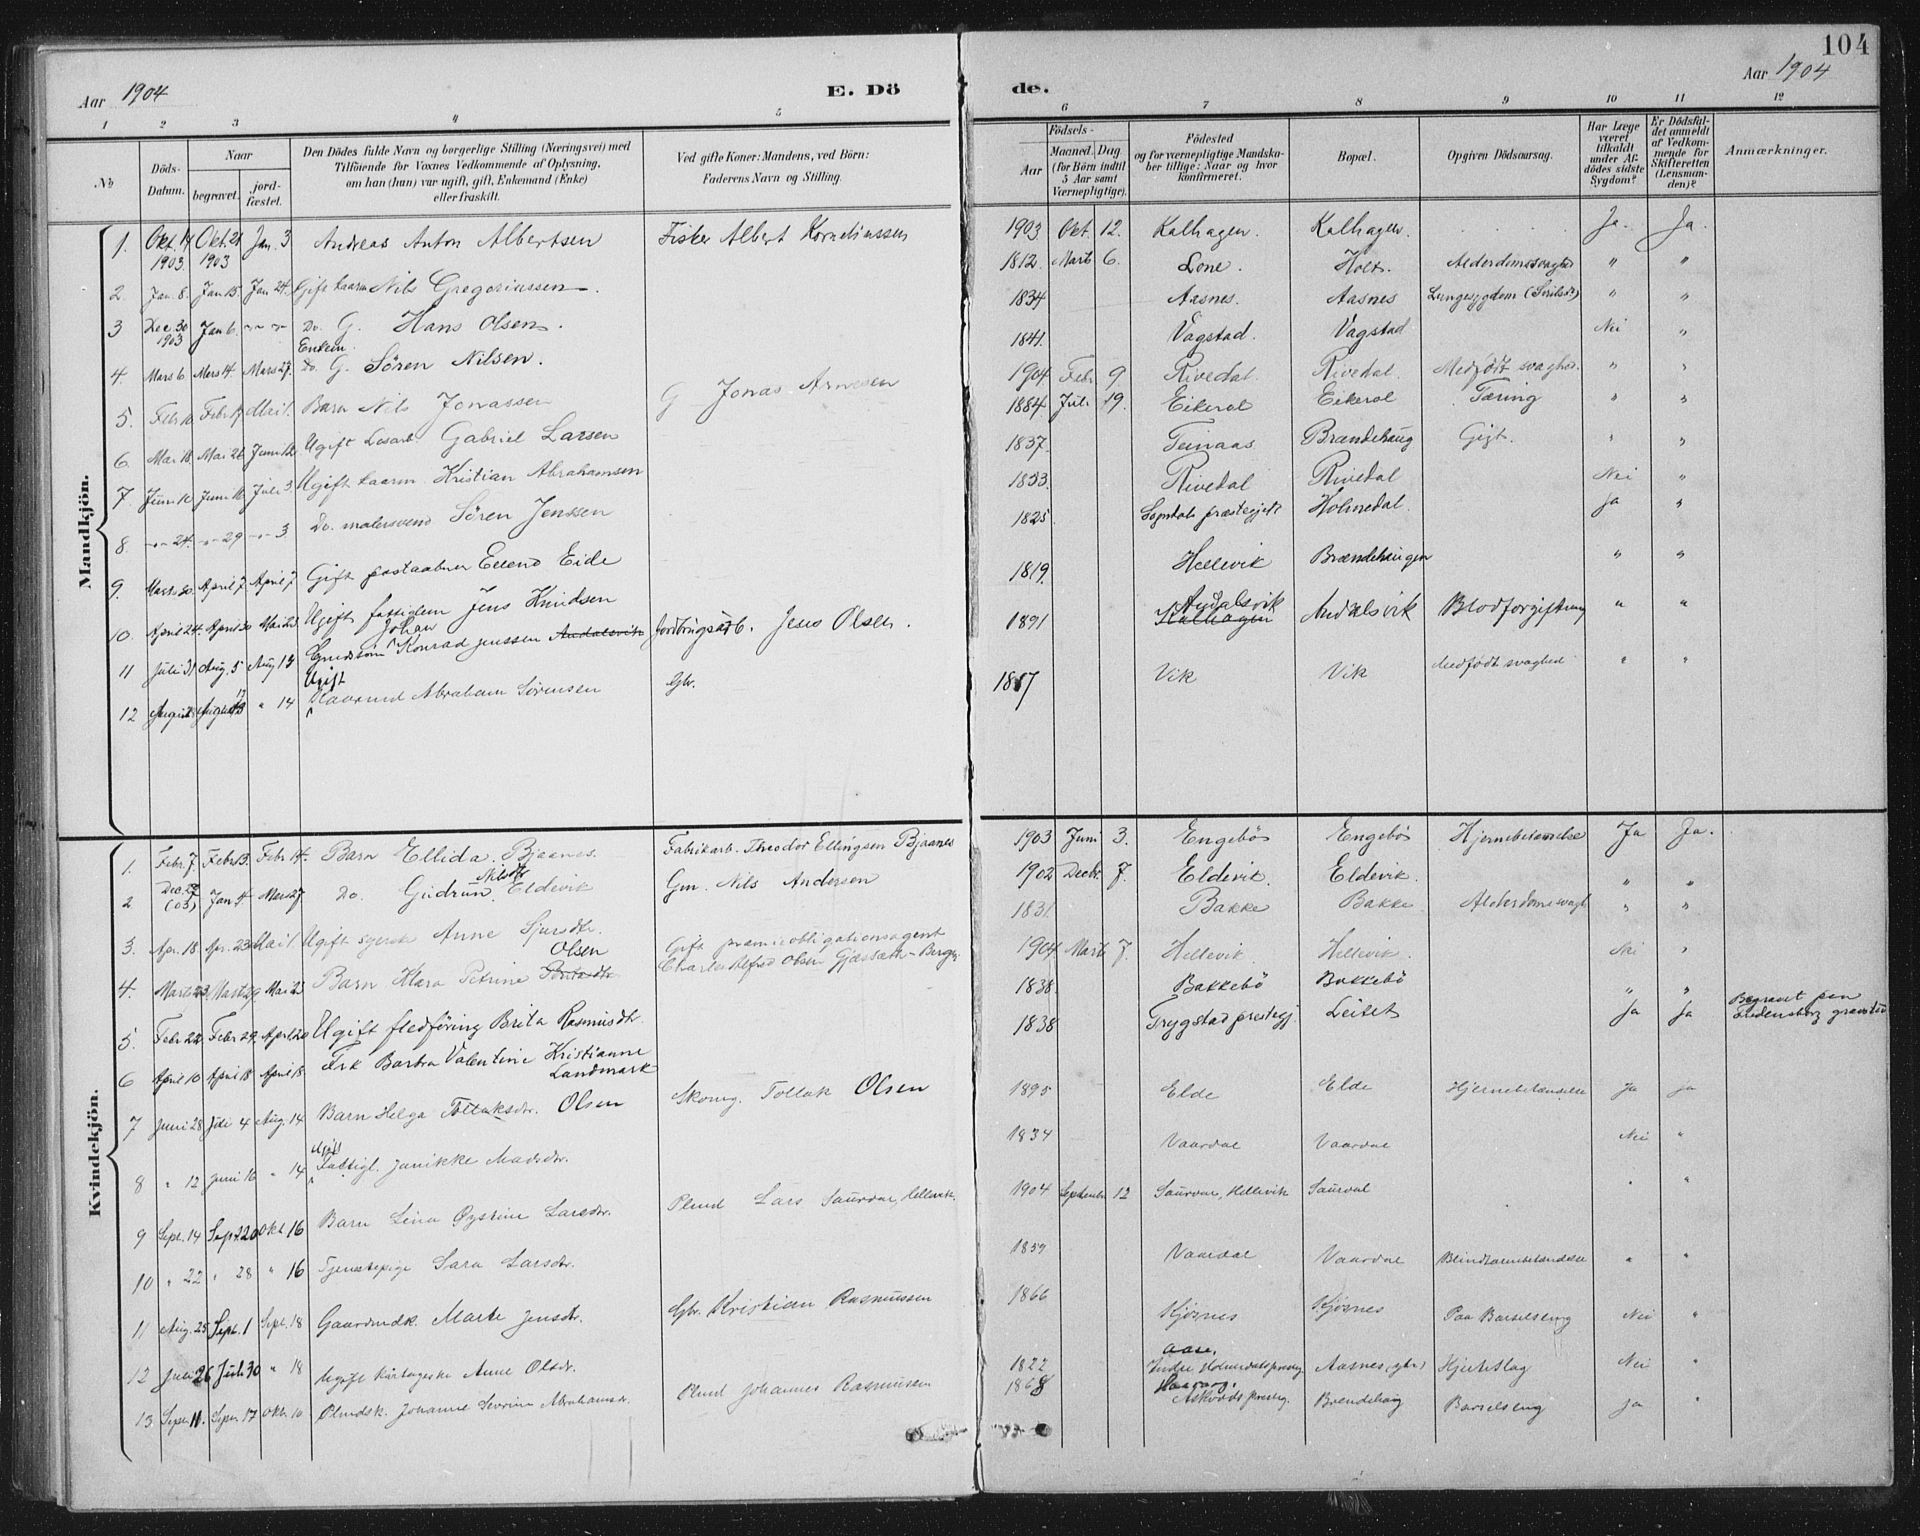 104
Aar 1904
E. Dö
de.
Aar 1904
1 2 3 4 5 6 7 8 9 10 11 12
No
Döds-Datum.
Naar
begravet.
jord-fæstet.
Den Dödes fulde Navn og borgerlige Stilling (Næringsvei) med
Tilföiende for Voxnes Vedkommende af Oplysning,
om han (hun) var ugift, gift, Enkemand (Enke)
eller fraskilt.
Ved gifte Koner: Mandens, ved Börn:
Faderens Navn og Stilling.
Födsels-
Aar
Maaned. Dag
(for Börn indtil
5 Aar samt
Værnepligtige).
Födested
og for værnepligtige Mandska-
ber tillige: Naar og hvor
konfirmeret.
Bopæl.
Opgiven Dödsaarsag.
Har Læge
været
tilkaldt
under Af-
dödes sidste
Sygdom?
Er Dödsfal-
det anmeldt
af Vedkom-
mende for
Skifteretten
(Lensman-
den)?
Anmærkninger.
Mandkjön.
1. Okt. 14 1903 Okt. 21 1903 Jan. 3 Andreas Anton Albertsen Fisker Albert Korneliussen 1903 Okt. 12. Kalhagen. Kalhagen. Ja. Ja.
2. Jan. 8. Jan 15. Jan 24. Gift kaarm Nils Gregoriussen 1812. Marts 6. Lone. Holt. Alderdomssvaghed " "
3 Dec 30 1903 Jan 6. Do. G. Hans Olsen. 1834 Aasnes. Aasnes Lungesygdom " "
4. Mars 6 Mars 14. Mars 27. Enkem. Do. G. Sören Nilsen. 1841. Vagstad. Vagstad Nei "
5. Febr 10 Febr 17 Mai 1. Barn Nils Jonassen G Jonas Arnesen 1904 Febr 9 Rivedal. Rivedal. Medfødt svaghed. " "
6. Mai 18 Mai 26 Juni 12. Ugift Losarb. Gabriel Larsen 1884. Juli 19. Eikerol Eikerol Tæring " "
7 Juni 10 Juni 18 Juli 3. Ugift kaarm. Kristian Abrahamsen 1837. Brandehaug Gigt. " "
8. 24. 29 3 Do. malersvend Sören Jenssen 1833. Rivedal Rivedal Nei "
9. Marts 30 April 7 April 7 Gift postaabner Eide 1825 Sogndals præstegjeld Holmedal. Ja "
10. April 24. April 30 Mai 23 Ugift fattiglem Jens Knudsen 1819. Hellevik Brændehaugen " "
11 Juli 31 Aug. 5 Aug 13 Johan Konrad Jenssen Andalsvik Jordbrugsarb. Jens Olsen. 1891 Andalsvik Kalhagen Andalsvik Blodforgiftning " "
12 14 Ugift Kaarmd Abraham Sørensen Gbr. 1817 Vik Vik Medfødt svaghed " "
Kvindekjön.
1. Febr. 7. Febr 13. Febr 14. Barn Ellida. Bjaanes. Fabrikarb. Theodor Ellingsen Bjaanes 1903 Juni 3. Engebös Engebös Hjernebetændelse Ja Ja.
2 Dec. (03) Jan 4 Mars 27 Do. Gudrun Nilsdtr Eldevik Gm. Nils Andersen 1902 Decbr. 7. Eldevik. Eldevik. " "
3. Apr. 18 Apr. 23 Mai 1 Ugift Anne Sjursdtr. 1831. Bakke Bakke Alderdomssvagh " "
4. Marts 23. Marts 29 Mai 23 Barn Klara Petrine Olsen Gift præmieobligationsagent Charles Alfred Olsen Bergen 1904 Marts 7. Hellevik. Hellevik. Nei "
5. Febr 22 Febr 29. April 20 Ugift flødföring Brita Rasmusdtr. 1838. Bakkebö Bakkebö " "
6 April 10 April 18 April 18. Frk Barbra Valentine Kristianne Landmark 1838 Trygstad prestegj. Leitet Ja Ja Begravet paa gravsted
7 Juni 28 Juli 4 Aug. 14 Barn Helga Tollaksdtr. Olsen Skomg. Tollak Olsen 1895 Elde Elde Hjernebetændelse Ja Ja
8 " 12 Juni 16 " 14 Ugift Fattigl. Janikke Madsdtr. 1834 Vaardal Vaardal Nei "
9 Sept. 14 Sept 20 Okt 16 Barn Lina Øystine Larsdtr. Plmd Lars Saurdal, Hellevik. 1904 September 12 Saurdal, Hellevik Saurdal " "
10 " 22 " 28 " 16 Tjenestepige Sara Larsdtr. 1859 Vaardal Vaardal Blindtarmbetændelse " "
11 Aug. 25 Sept. 1 Sept. 18 Gaardmdk. Marte Jensdtr. Gbr. Kristian Rasmussen 1866 Kjösnes Kjösnes Paa Barselseng Nei "
12 Juli 26 Juli 30 " 18 Ugift Anne Olsdr. 1822 Aase, Indre Holmedals presteg Aasnes Hjerteslag Nei "
13 Septr. 11. Septr. 17 Oktr. 10 Plmdsk. Johanne Severine Abrahamsdr. Plmd Johannes Rasmussen 1868 Askvolds presteg. Brendehög Barselseng Ja "